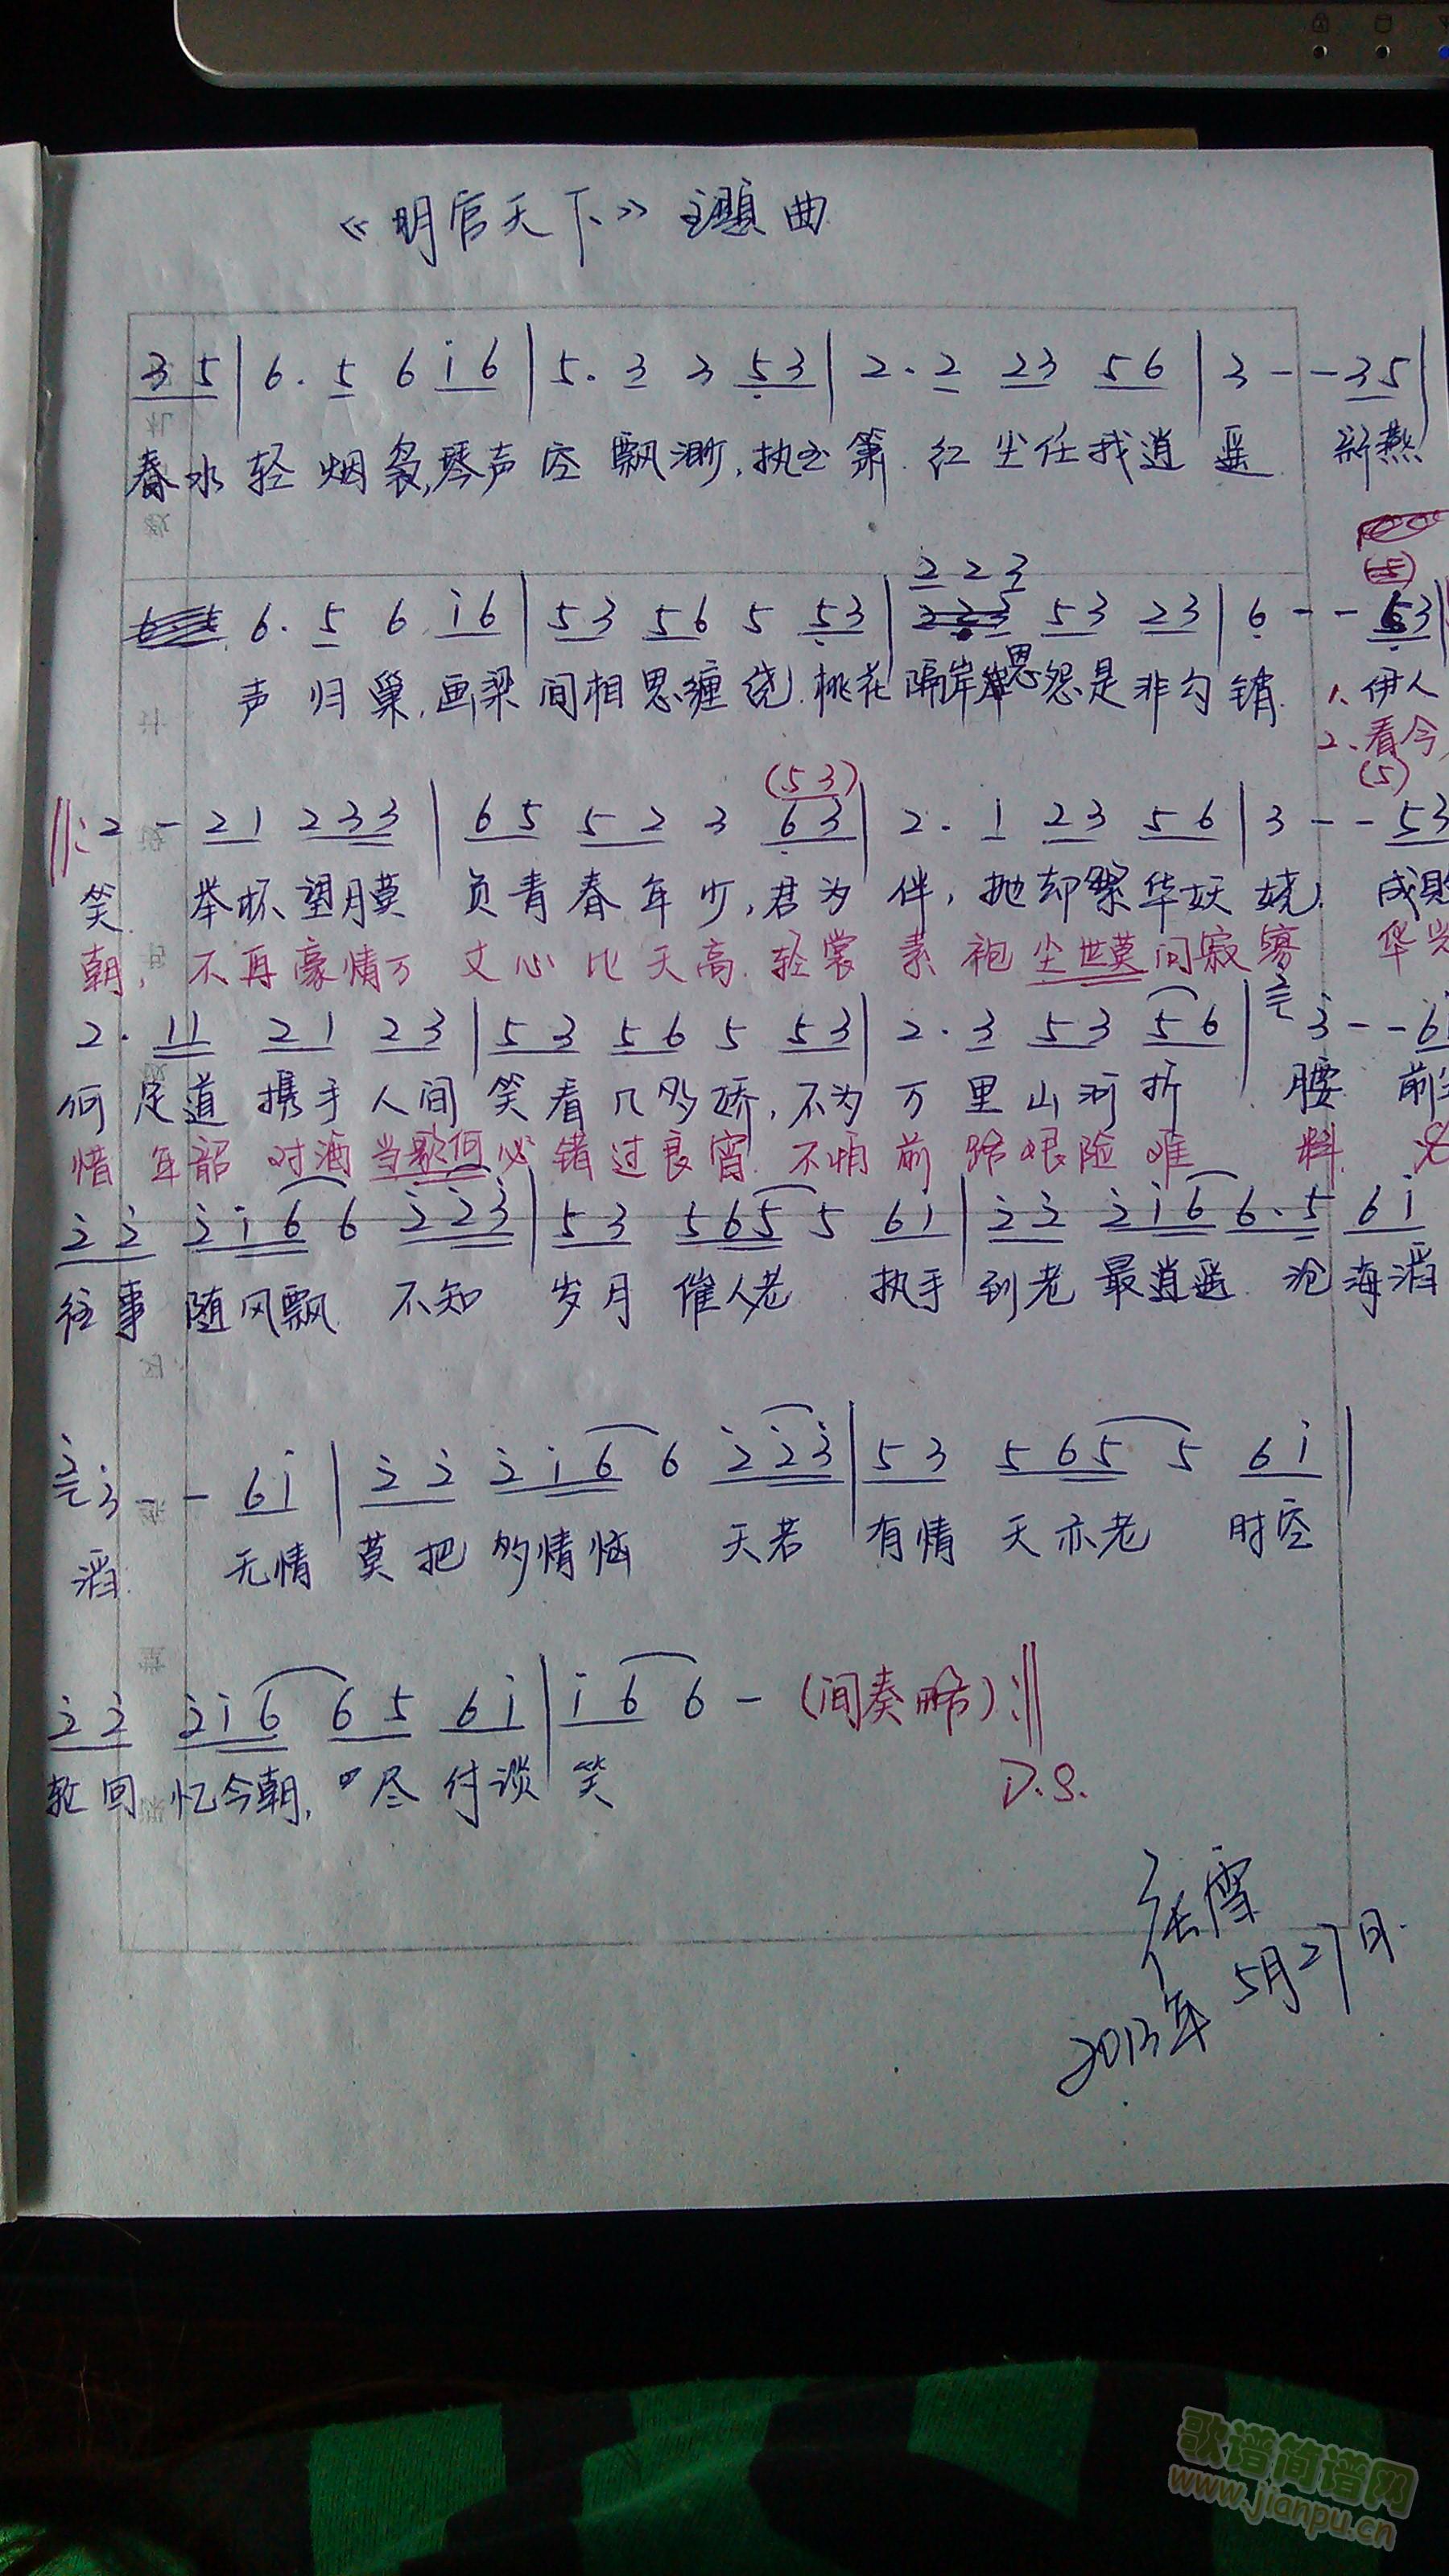 《明宫天下》主题曲
3 5 | 6. 5 6 i 6 | 5. 3 3 5 3 | 2. 2 2 3 5 6 | 3 - - 3 5 |
春水轻烟袅,琴声空飘渺,执玉箫.红尘任我逍遥 新燕
2 2 3
(5)
6. 5 6 i 6 | 5 3 5 6 5 5 3 | 5 3 2 3 | 6 - - 3
声归巢,画梁间相思缠绕.桃花隔岸恩怨是非勾销. 1、伊人
2、看今
(5 3) (5)
‖: 2 - 2 1 2 3 3 | 6 5 5 2 3 6 3 | 2. 1 2 3 5 6 | 3 - - 5 3
笑 举杯望月莫 负青春年少,君为伴,抛却繁华妖娆. 成败
朝,不再豪情万丈心比天高.轻裳素袍尘世莫问寂寥 华
2. 1 1 2 1 2 3 | 5 3 5 6 5 5 3 | 2. 3 5 3 5 6 | 2 3 - - 6
何足道 携手人间笑看几多娇,不为万里山河折腰 前
惜年韶 对酒当歌何必错过良宵.不怕前路艰险难料
2 2 2 i 6 6 2 2 3 | 5 3 5 6 5 5 6 i | 2 2 2 i 6 6. 5 6 i
往事随风飘 不知岁月催人老 执手到老最逍遥.沧海滔
2 3 - - 6 i | 2 2 2 i 6 6 2 2 3 | 5 3 5 6 5 5 6 i |
滔 无情莫把多情恼 天若有情天亦老 时空
2 2 2 i 6 6 5 6 i | i 6 6 - (间奏略) :‖
轮回忆今朝, 尽付谈笑
D.S.
2013年5月27日.
歌谱简谱网
www.jianpu.cn